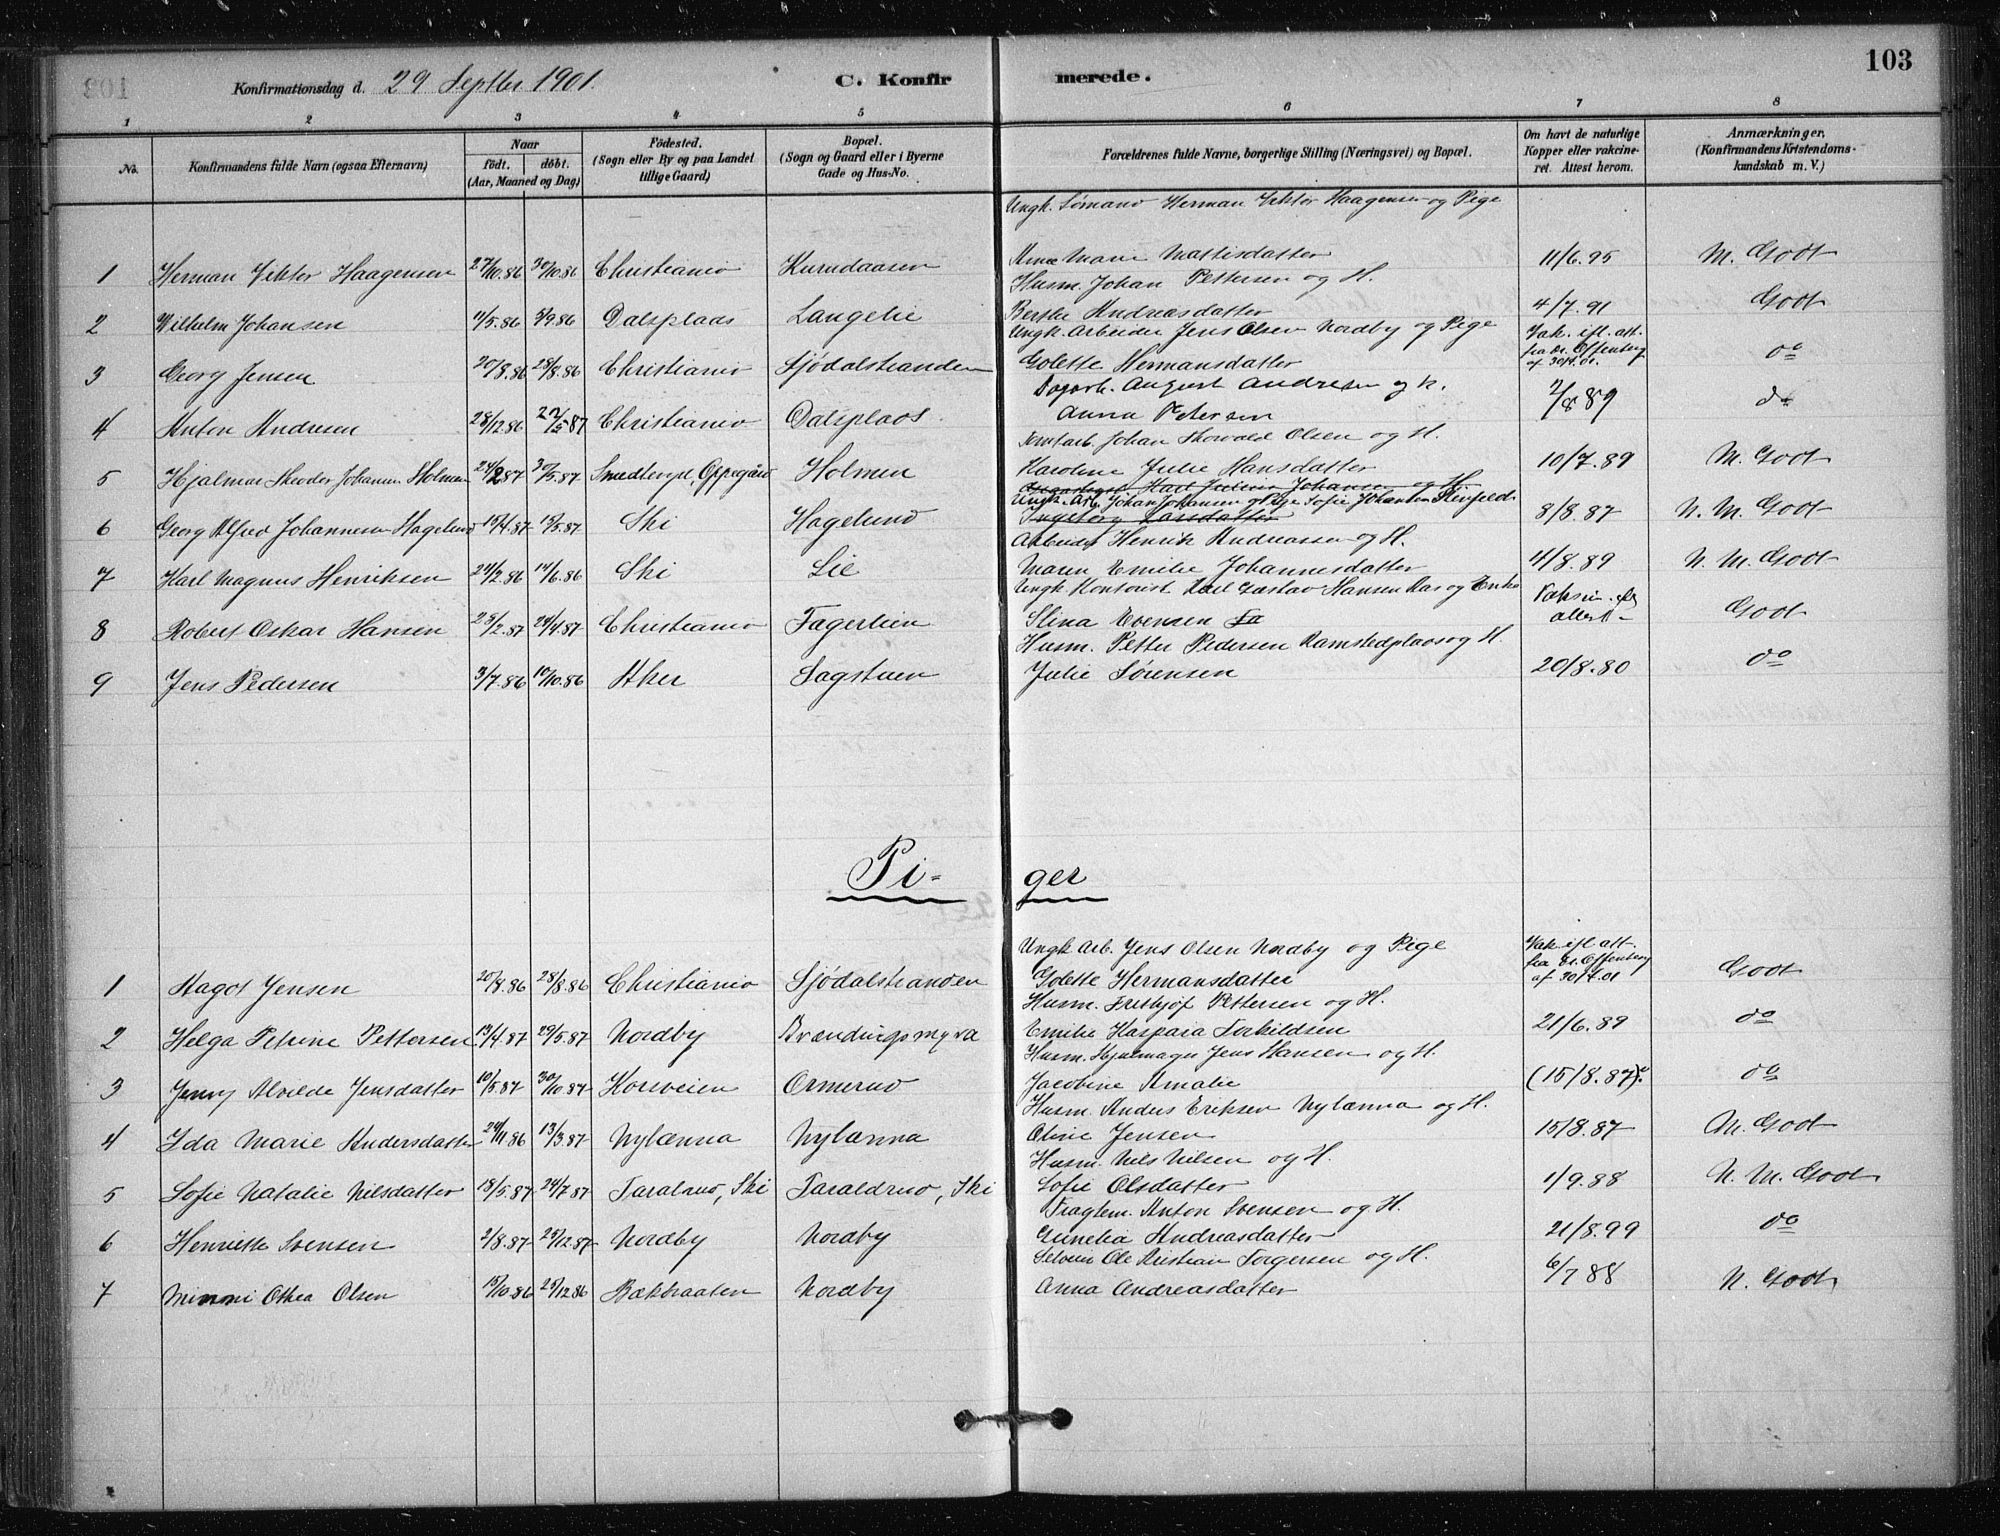 103
Konfirmationsdag d. 29 Septbr 1901.
C. Konfirmerede.
1 2 3 4 5 6 7 8
No.
Konfirmandens fulde Navn (ogsaa Efternavn)
Naar
födt. döbt.
(Aar, Maaned og Dag)
Födested.
(Sogn eller By og paa Landet
tillige Gaard)
Bopæl.
(Sogn og Gaard eller i Byerne
Gade og Hus-No.
Forældrenes fulde Navne, borgerlige Stilling (Næringsvei) og Bopæl.
Om havt de naturlige
Kopper eller vakcine-
ret. Attest herom.
Anmærkninger.
(Konfirmandens Kristendoms-
kundskab m. V.)
Ungk. Sømand Herman Viktor Haagensen og Pige
1 Herman Viktor Haagensen 27/10.86 30/10.86 Christiania Anne Marie Mattisdatter 11/6.95 M. Godt
Husm. Johan Pettersen og H.
2 Wilhelm Johansen 11/5.86 5/9.86 Dalsplads Langelie Berthe Andreasdatter 4/7.91 Godt
Ungk. Arbeider Jens Olsen Nordby og Pige
3 Georg Jensen 20/8.86 28/8.86 Christiania Sjödalstranden Golette Hermansdatter Vak. ifl. att. fra Dr. Offenberg af 30/4.01. do
Dagarb. August Andresen og h.
4 Anton Andresen 28/12.86 Christiania Dalsplads Anna Petersen 2/8 89 do
Tomtarb. Johan Olsen og H.
5 Hjalmar Theodor Johannes Holmen 24/2 87 30/5.87 Smedberget, Oppegård Holmen Karoline Julie Hansdatter 10/7.89 M. Godt
Ungk. Arb. Johan Johansen og Pige Sofie Johansen
6 Georg Alfred Johannesen Hagelund 15/4.87 19/5.87 Ski Hagelund Ingeborg Larsdatter 8/8.87 N. M. Godt
Arbeider Henrik Andreassen og H.
7 Karl Magnus Henriksen 24/2.86 14/6.86 Ski Lie Maren Emilie Johannesdatter 4/8.89 N. M. Godt
Ungk. Kontorist Karl Gustav Hansen Aas og Enke
8 Robert Oskar Hansen 28/2.87 24/4.87 Christiania Fagerlien Stina Evensen Godt
Husm. Petter Pedersen Ramstedplads og H.
9 Jens Pedersen 3/7.86 10/10.86 Aker Sagstuen Julie Sørensen 20/8.80 do
Pi- ger
Ungk. Arb. Jens Olsen Nordby og Pige
1 Magot Jensen 20/8.86 28/8.86 Christiania Sjödalstranden Golette Hermansdatter Vak ifl att. fra Dr. Offenberg af 30/4.01 Godt
Husm. Frithjof Pettersen og H.
2 Helga Petrine Pettersen 13/4.87 29/5.87 Nordby Brændingsmyra Emilie Kaspara Torkildsen 21/6.89 do
Husm. Jens Hansen og H.
3 Jenny Alvilde Jensdatter 10/5.87 30/10.87 Korsveien Ormerud Jacobine Amalie (15/8.87) do
Husm. Anders Eriksen Nylænna og H.
4 Ida Marie Andersdatter 24/11.86 13/3.87 Nylænna Nylænna Oline Jensen 15/8.87 M. Godt
Husm. Nils Nilsen og H.
5 Sofie Natalie Nilsdatter 18/5.87 24/7.87 Taralrud, Ski Taraldrud, Ski Sofie Olsdatter 1/9.88 N. M. Godt
Fragtem. Anton Svensen og H.
6 Henriette Svensen 2/8.87 25/12.87 Nordby Nordby Andreasdatter 21/8.99 do
Selveier Ole Kristian Torgersen og H.
7 Minni Othea Olsen 15/10.86 25/12.86 Bækbraaten Nordby Anna Andreasdatter 6/7 88 N. Godt